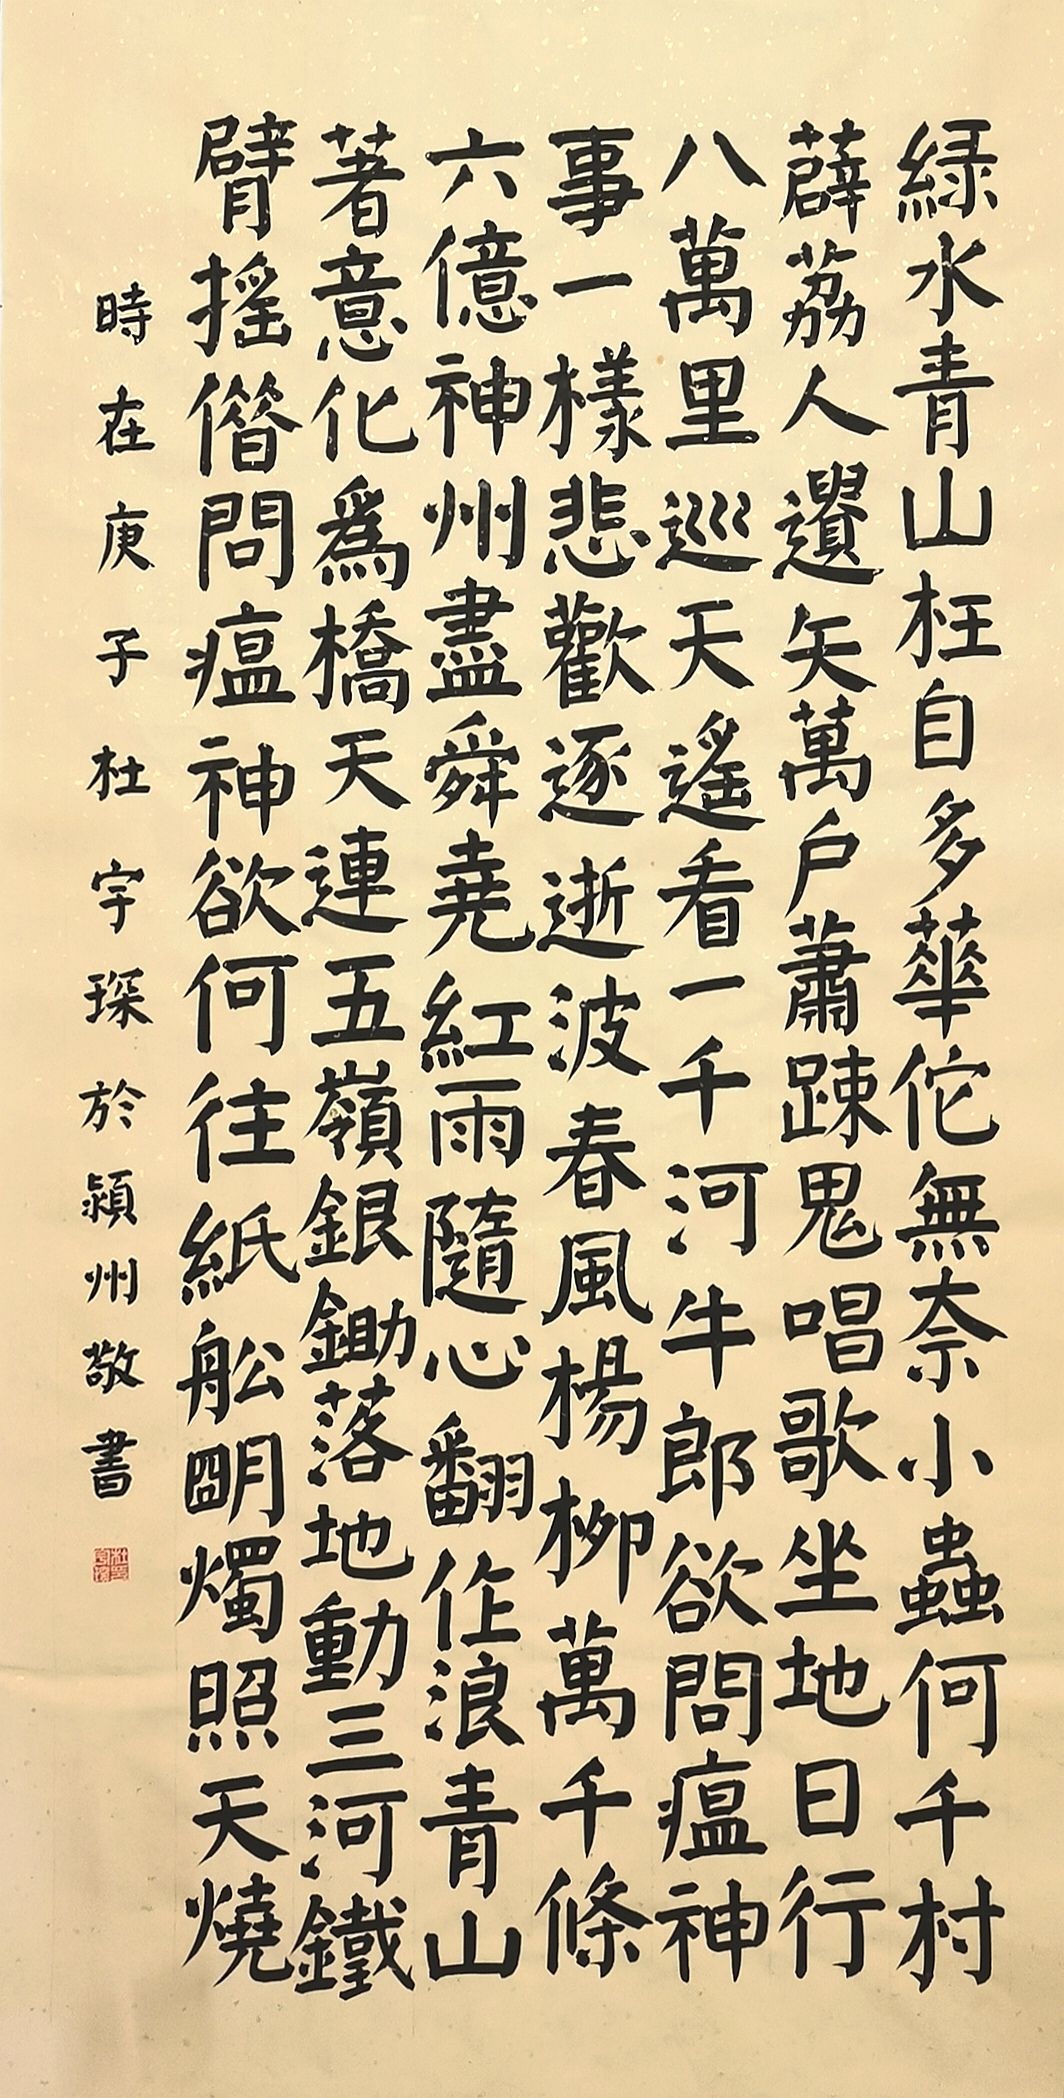 緑水青山枉自多華佗無奈小蟲何千村
薜茘人遺矢萬户蕭踈鬼唱歌坐地日行
八萬里巡天遙看一千河牛郎欲問瘟神
事一樣悲歡逐逝波春風楊柳萬千條
六億神州盡舜堯紅雨隨心翻作浪青山
著意化爲橋天連五嶺銀鋤落地動三河鐵
臂摇借問瘟神欲何往紙舩明燭照天燒
時在庚子杜宇琛於潁州敬書